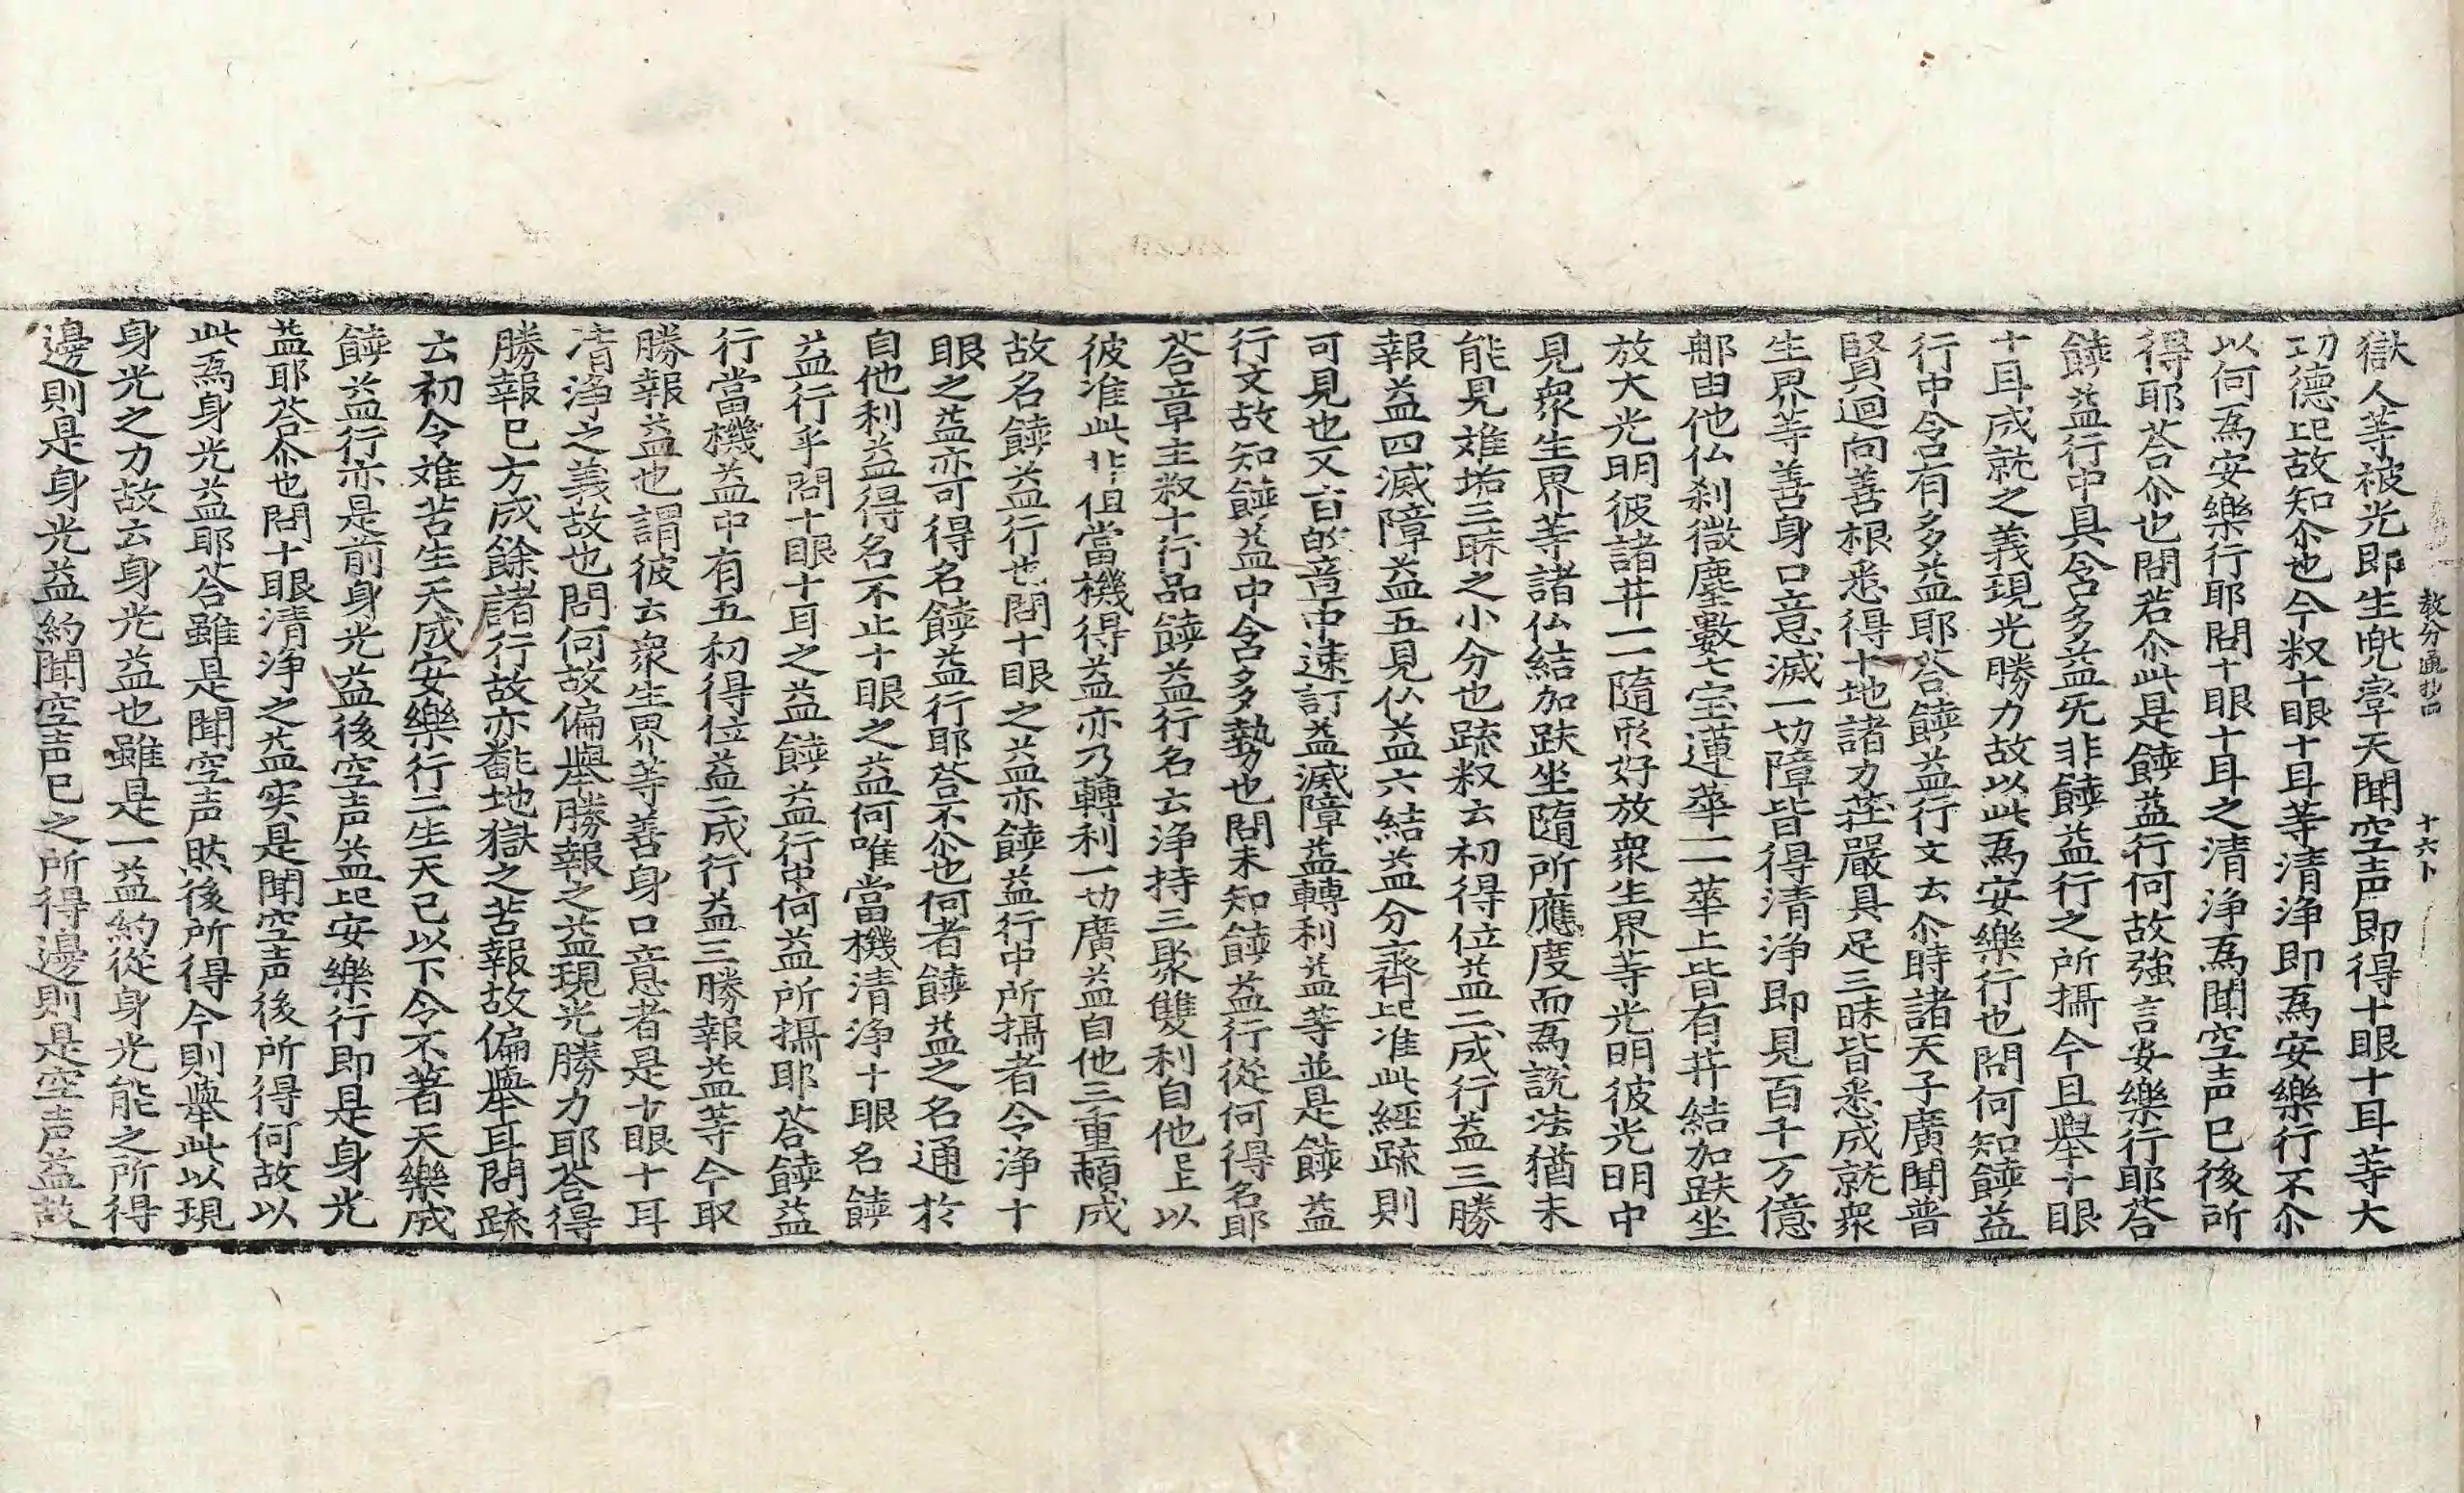 教分通抄四　十六卜
獄人等被光即生兜率天聞空声即得十眼十耳等大
功德㠯故知尒也今叙十眼十耳等清浄即為安樂行不尒
以何為安樂行耶問十眼十耳之清浄為聞空声已後所
得耶荅尒也問若尒此是饒益行何故強言安樂行耶荅
饒益行中具含多益旡非饒益行之所攝今且舉十眼
十耳成就之義現光勝力故以此為安樂行也問何知饒益
行中含有多益耶荅饒益行文云尒時諸天子廣聞普
賢迴向善根悉得十地諸力莊嚴具足三昧皆悉成就衆
生界等善身口意滅一切障皆得清浄即見百千万億
那由他仏刹微塵數七宝蓮華一一華上皆有井結加趺坐
放大光明彼諸井一一隨形好放衆生界等光明彼光明中
見衆生界等諸仏結加趺坐隨所應度而為説法猶未
能見難垢三昧之小分也䟽叙云初得位益二成行益三勝
報益四滅障益五見仏益六結益分齊㠯准此經䟽則
可見也又言的章中速訂益滅障益轉利益等並是饒益
行文故知饒益中含多勢也問未知饒益行從何得名耶
荅章主叙十行品饒益行名云浄持三聚雙利自他㠯上以
彼准此非但當機得益亦乃轉利一切廣益自他三重頓成
故名饒益行也問十眼之益亦饒益行中所攝者令浄十
眼之益亦可得名饒益行耶荅不尒也何者饒益之名通於
自他利益得名不止十眼之益何唯當機清浄十眼名饒
益行乎問十眼十耳之益饒益行中何益所攝耶荅饒益
行當機益中有五初得位益二成行益三勝報益等今取
勝報益也謂彼云衆生界等善身口意者是十眼十耳
清浄之義故也問何故偏舉勝報之益現光勝力耶荅得
勝報已方成餘諸行故亦翻地獄之苦報故偏舉耳問䟽
云初令難苦生天成安樂行二生天已以下令不著天樂成
饒益行亦是前身光益後空声益㠯安樂行即是身光
益耶荅尒也問十眼清浄之益実是聞空声後所得何故以
此為身光益耶荅雖是聞空声然後所得今則舉此以現
身光之力故云身光益也雖是一益約從身光能之所得
邊則是身光益約聞空声已之所得邊則是空声益故